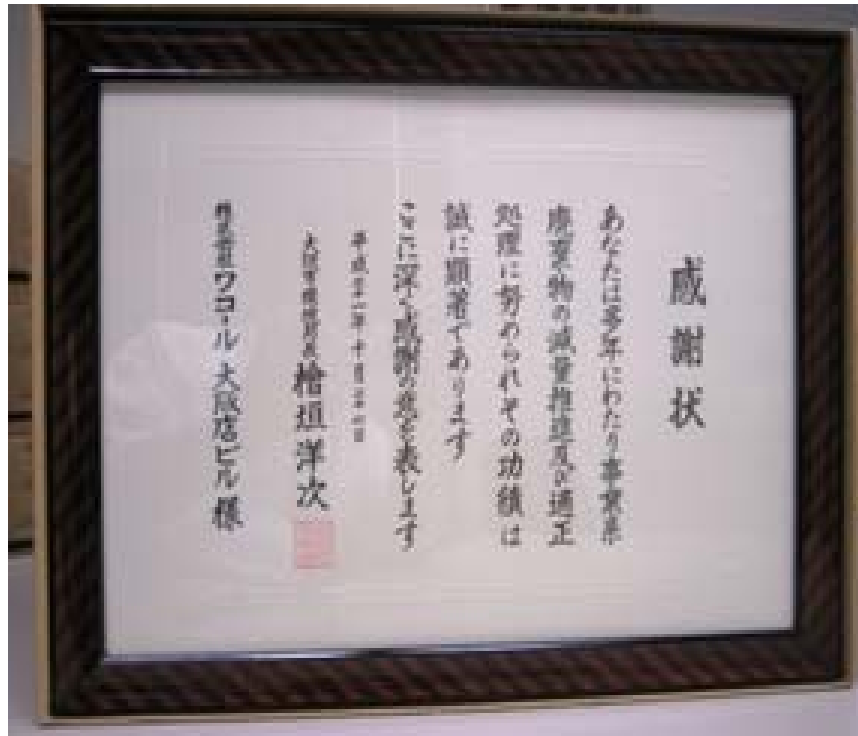 感謝状
あなたは多年にわたり事業系
廃棄物の減量推進及び適正
処理に努められその功績は
誠に顕著であります
ここに深く感謝の意を表します
平成二十一年十月
大阪市環境局長 檜垣洋次
株式会社ワコール大阪店ビル様